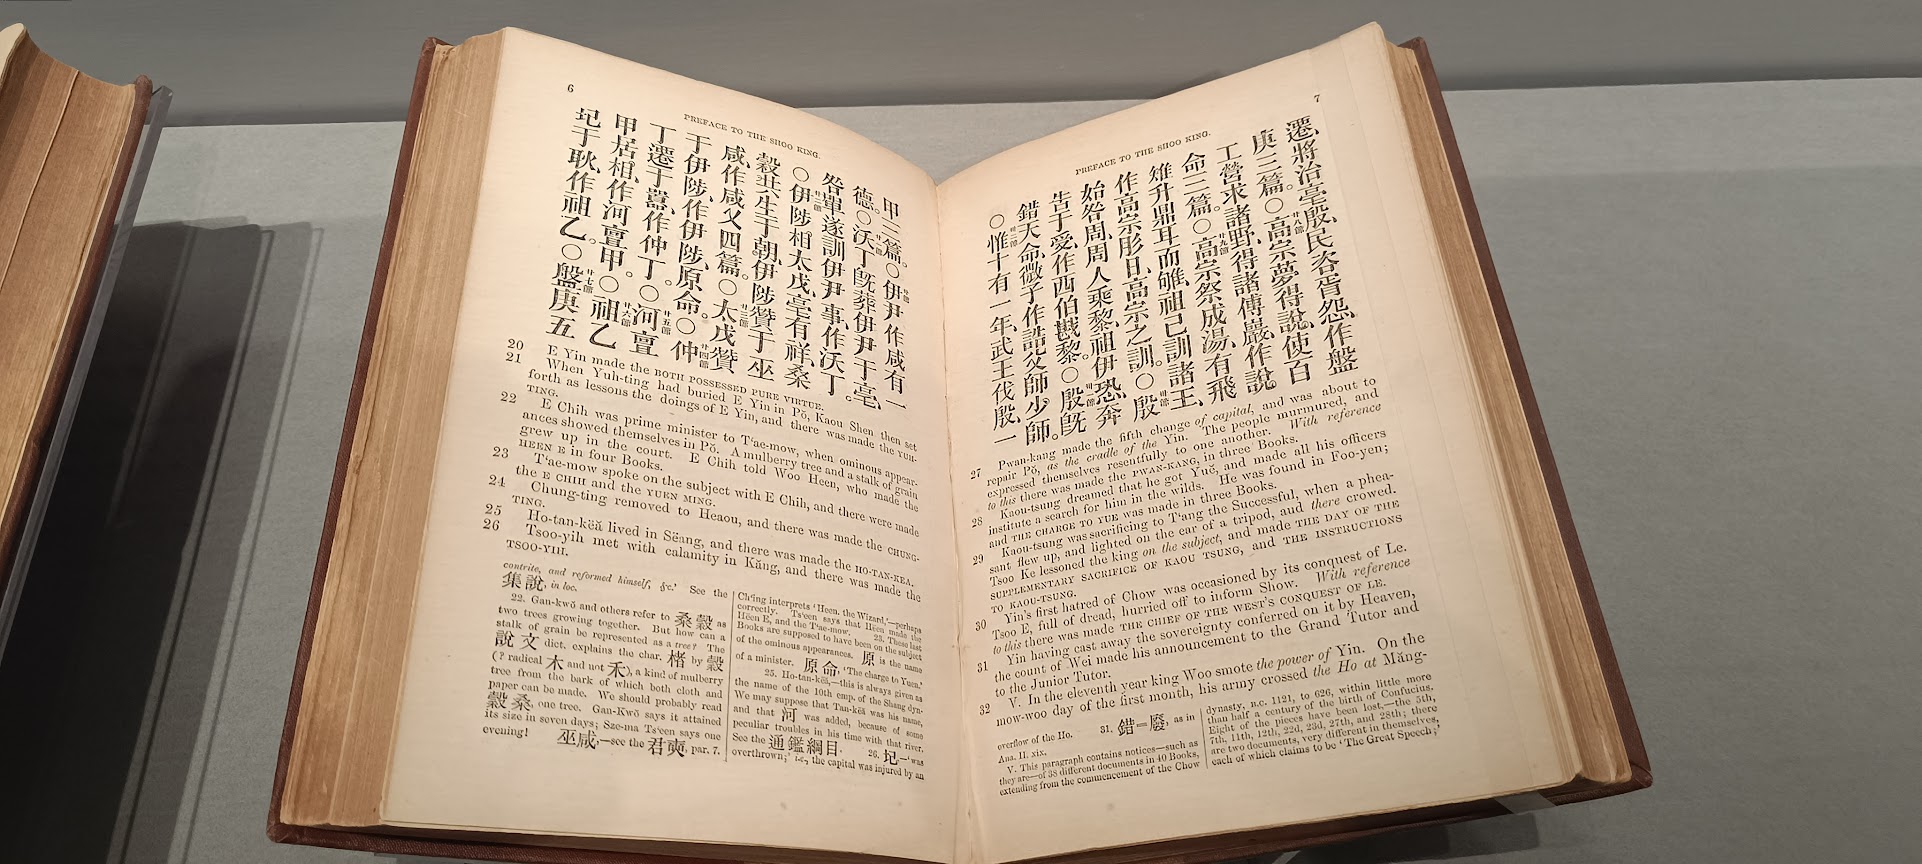 6
PREFACE TO THE SHOO KING.
甲三篇。○廿節伊尹作咸有一
德。○廿一節沃丁旣葬伊尹于亳、
咎單遂訓伊尹事、作沃丁。
○廿二節伊陟相太戊、亳有祥、桑
穀共生于朝、伊陟贊于巫
咸、作咸乂四篇。○廿三節太戊贊
于伊陟、作伊陟、原命。○廿四節仲
丁遷于囂、作仲丁。○廿五節河亶
甲居相、作河亶甲。○廿六節祖乙
圮于耿、作祖乙。○廿七節盤庚五
20 E Yin made the BOTH POSSESSED PURE VIRTUE.
21 When Yuh-ting had buried E Yin in Pŏ, Kaou Shen then set
forth as lessons the doings of E Yin, and there was made the YUH-
TING.
22 E Chih was prime minister to T'ae-mow, when ominous appear-
ances showed themselves in Pŏ. A mulberry tree and a stalk of grain
grew up in the court. E Chih told Woo Heen, who made the
HEEN E in four Books.
23 T'ae-mow spoke on the subject with E Chih, and there were made
the E CHIH and the YUEN MING.
24 Chung-ting removed to Heaou, and there was made the CHUNG-
TING.
25 Ho-tan-këă lived in Sëang, and there was made the HO-TAN-KEA.
26 Tsoo-yih met with calamity in Kăng, and there was made the
TSOO-YIH.
contrite, and reformed himself, &c.' See the
集說 in loc.
22. Gan-kwŏ and others refer to 桑穀 as
two trees growing together. But how can a
stalk of grain be represented as a tree? The
說文 dict. explains the char. 楮 by 榖
(? radical 木 and not 禾), a kind of mulberry
tree from the bark of which both cloth and
paper can be made. We should probably read
榖桑, one tree. Gan-Kwŏ says it attained
its size in seven days; Sze-ma Ts'een says one
evening! 巫咸,—see the 君奭, par. 7.
Ch'ing interprets 'Heen, the Wizard,'—perhaps
correctly. Ts'een says that Heen made the
Hëen E, and the T'ae-mow. 23. These last
Books are supposed to have been on the subject
of the ominous appearances. 原 is the name
of a minister. 原命 'The charge to Yuen.'
25. Ho-tan-këă,—this is always given as
the name of the 10th emp. of the Shang dyn-
We may suppose that Tan-këă was his name,
and that 河 was added, because of some
peculiar troubles in his time with that river.
See the 通鑑綱目. 26. 圮—'was
overthrown;' i.e., the capital was injured by an
7
PREFACE TO THE SHOO KING.
遷、將治亳殷、民咨胥怨、作盤
庚三篇。○廿八節高宗夢得說、使百
工營求諸野、得諸傅巖、作說
命三篇。○廿九節高宗祭成湯、有飛
雉升鼎耳而雊、祖己訓諸王、
作高宗肜日、高宗之訓。○卅節殷
始咎周、周人乘黎、祖伊恐、奔
告于受、作西伯戡黎。○卅一節殷旣
錯天命、微子作誥父師少師。
○卅二節惟十有一年、武王伐殷、一
27 Pwan-kang made the fifth change of capital, and was about to
repair Pŏ, as the cradle of the Yin. The people murmured, and
expressed themselves resentfully to one another. With reference
to this there was made the PWAN-KANG, in three Books.
28 Kaou-tsung dreamed that he got Yuĕ, and made all his officers
institute a search for him in the wilds. He was found in Foo-yen;
and THE CHARGE TO YUE was made in three Books.
29 Kaou-tsung was sacrificing to T'ang the Successful, when a phea-
sant flew up, and lighted on the ear of a tripod, and there crowed.
Tsoo Ke lessoned the king on the subject, and made THE DAY OF THE
SUPPLEMENTARY SACRIFICE OF KAOU TSUNG, and THE INSTRUCTIONS
TO KAOU-TSUNG.
30 Yin's first hatred of Chow was occasioned by its conquest of Le.
Tsoo E, full of dread, hurried off to inform Show. With reference
to this there was made THE CHIEF OF THE WEST'S CONQUEST OF LE.
31 Yin having cast away the sovereignty conferred on it by Heaven,
the count of Wei made his announcement to the Grand Tutor and
to the Junior Tutor.
32 V. In the eleventh year king Woo smote the power of Yin. On the
mow-woo day of the first month, his army crossed the Ho at Măng-
overflow of the Ho. 31. 錯=廢, as in
Ana. II. xix.
V. This paragraph contains notices—such as
they are—of 38 different documents in 40 Books,
extending from the commencement of the Chow
dynasty, B.C. 1121, to 626, within little more
than half a century of the birth of Confucius.
Eight of the pieces have been lost,—the 5th,
7th, 11th, 12th, 22d, 23d, 27th, and 28th; there
are two documents, very different in themselves,
each of which claims to be 'The Great Speech;'